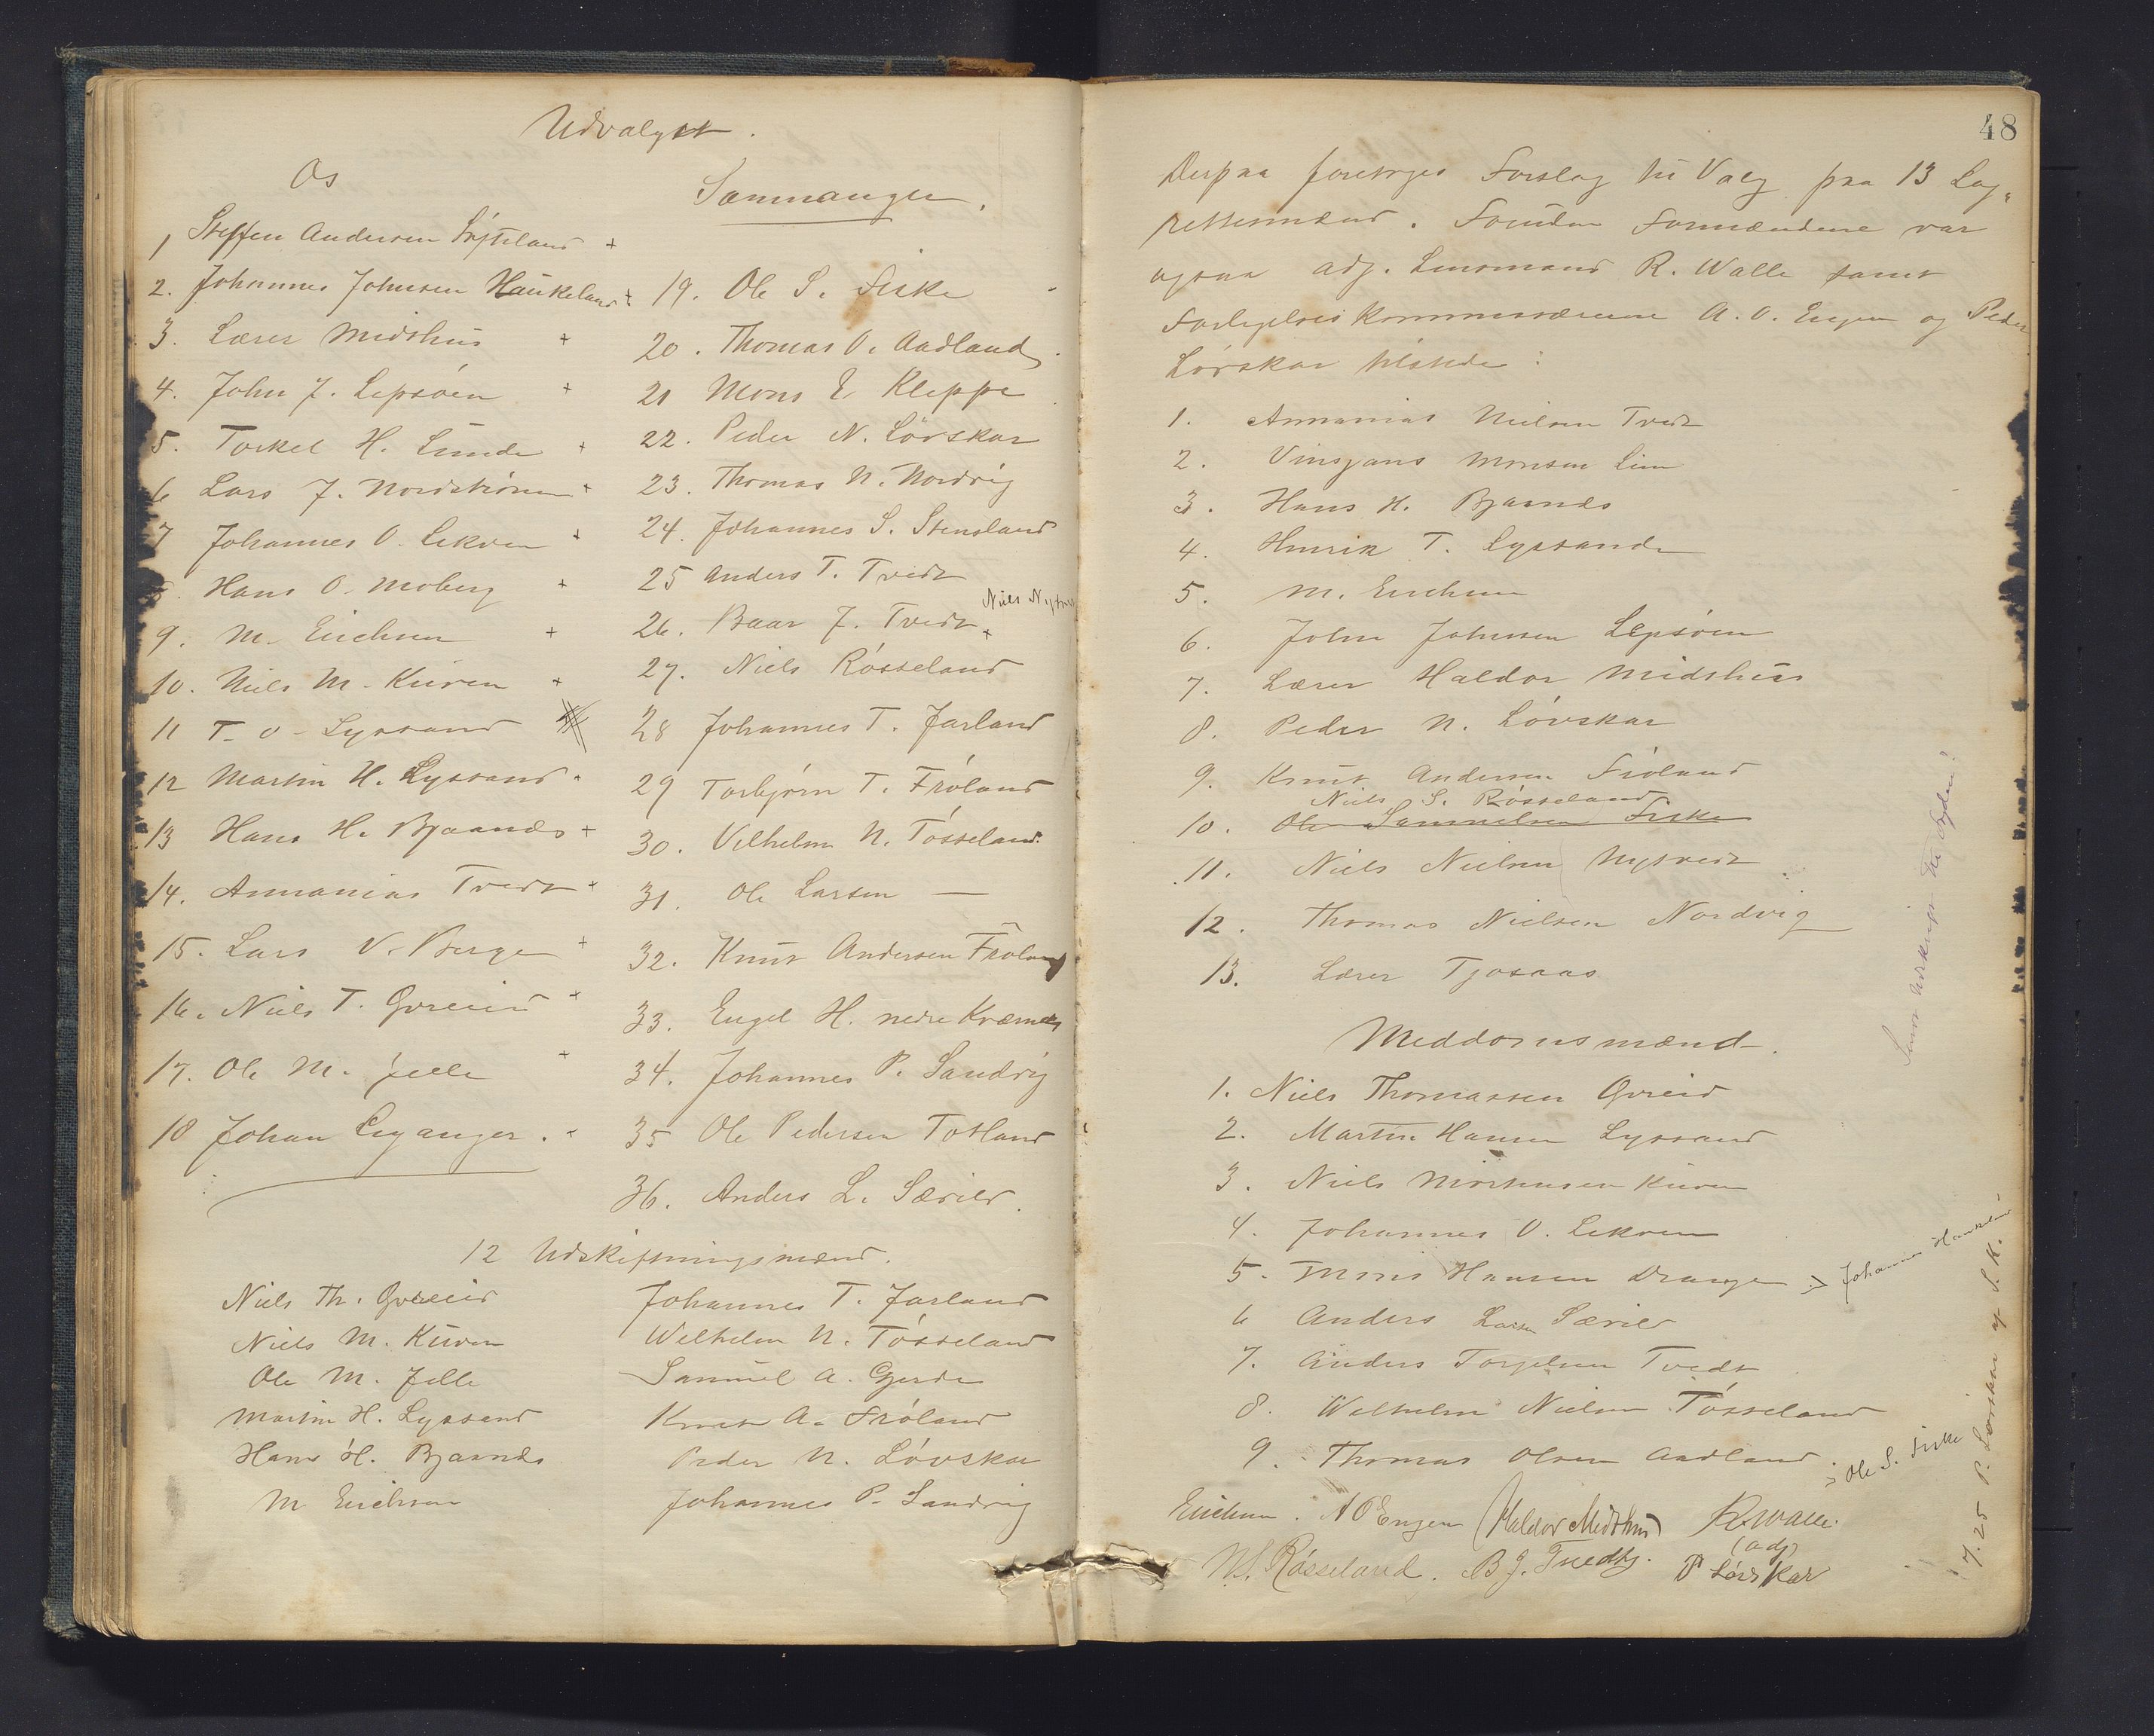 Udvalgte.
Os
1 Steffen Andersen Søfteland +
2. Johannes Johnsen Haukeland +
3. Lærer Midthus +
4. John J. Lepsøen +
5. Torkel H. Lunde +
6 Lars J. Nordstrønen +
7 Johannes O. Lekven +
8. Hans O. Moberg +
9. M. Erichsen +
10. Niels M. Kuven +
11 T. O. Lyssand
12 Martin H. Lyssand +
13 Hans H. Bjaanæs +
14. Annanias Tvedt +
15. Lars V. Berge +
16. Niels T. Gvreid +
17. Ole M. Jelle +
18 Johan Leganger. +
Sammanger.
19. Ole S. Fiske
20. Thomas O. Aadland
21 Mons E Kleppe
22. Peder N. Løvskar
23. Thomas N. Nordvig
24. Johannes S. Stensland
25 Anders T. Tvedt
26. Baar J. Tvedt +
Niels Nytvedt
27. Niels Røsseland
28 Johannes T. Jarland
29 Torbjørn T. Frøland
30. Vilhelm N. Tøsseland
31. Ole Larsen —
32. Knut Andersen Frøland
33. Engel H. nedre Kvernes
34. Johannes P. Sandvig
35 Ole Pedersen Totland
36. Anders L. Særvold.
12 Udskiftningsmænd.
Niels Th. Gvreid
Niels M. Kuven
Ole M. Jelle
Martin H. Lyssand
Hans H. Bjaanæs
M Erichsen
Johannes T. Jarland
Wilhelm N. Tøsseland
Samuel A. Gjerde
Knut A. Frøland
Peder N. Løvskar
Johannes P. Sandvig
48
Derpaa foretoges Forslag til Valg paa 13 Lag-
rettemænd. Foruden Formændene var
ogsaa adj. Lensmand R. Walle samt
Forligelseskommissærerne A. O. Engen og Peder
Løvskar tilstede:
1. Annanias Nielsen Tvedt
2. Vinsjans Monsen Lien
3. Hans H. Bjaanæs
4. Henrik T. Lyssande
5. M. Erichsen
6. John Johnsen Lepsøen
7. Lærer Haldor Midthus
8. Peder N. Løvskar
9. Knut Andersen Frøland
Niels S. Røsseland
10. Ole Samuelsen Fiske
11. Niels Nielsen Nytvedt
12. Thomas Nielsen Nordvig
13. Lærer Tjosaas
Meddomsmænd.
1. Niels Thomassen Gvreid
2. Martin Hansen Lyssand
3. Niels Mikkelsen Kuven
4. Johannes O. Lekven
5. Mons Hansen Drange
Johannes Haukeland
6 Anders Larsen Særvold
7. Anders Torgilsen Tvedt
8. Wilhelm Nielsen Tøsseland
9. Thomas Olsen Aadland.
Ole S. Fiske
Erichsen. A O Engen Haldor Midthus R. Walle.
(adj)
N. S. Røsseland. B J. Tvedt. P Løvskar
7. 25 P. Løvskar af S. K.